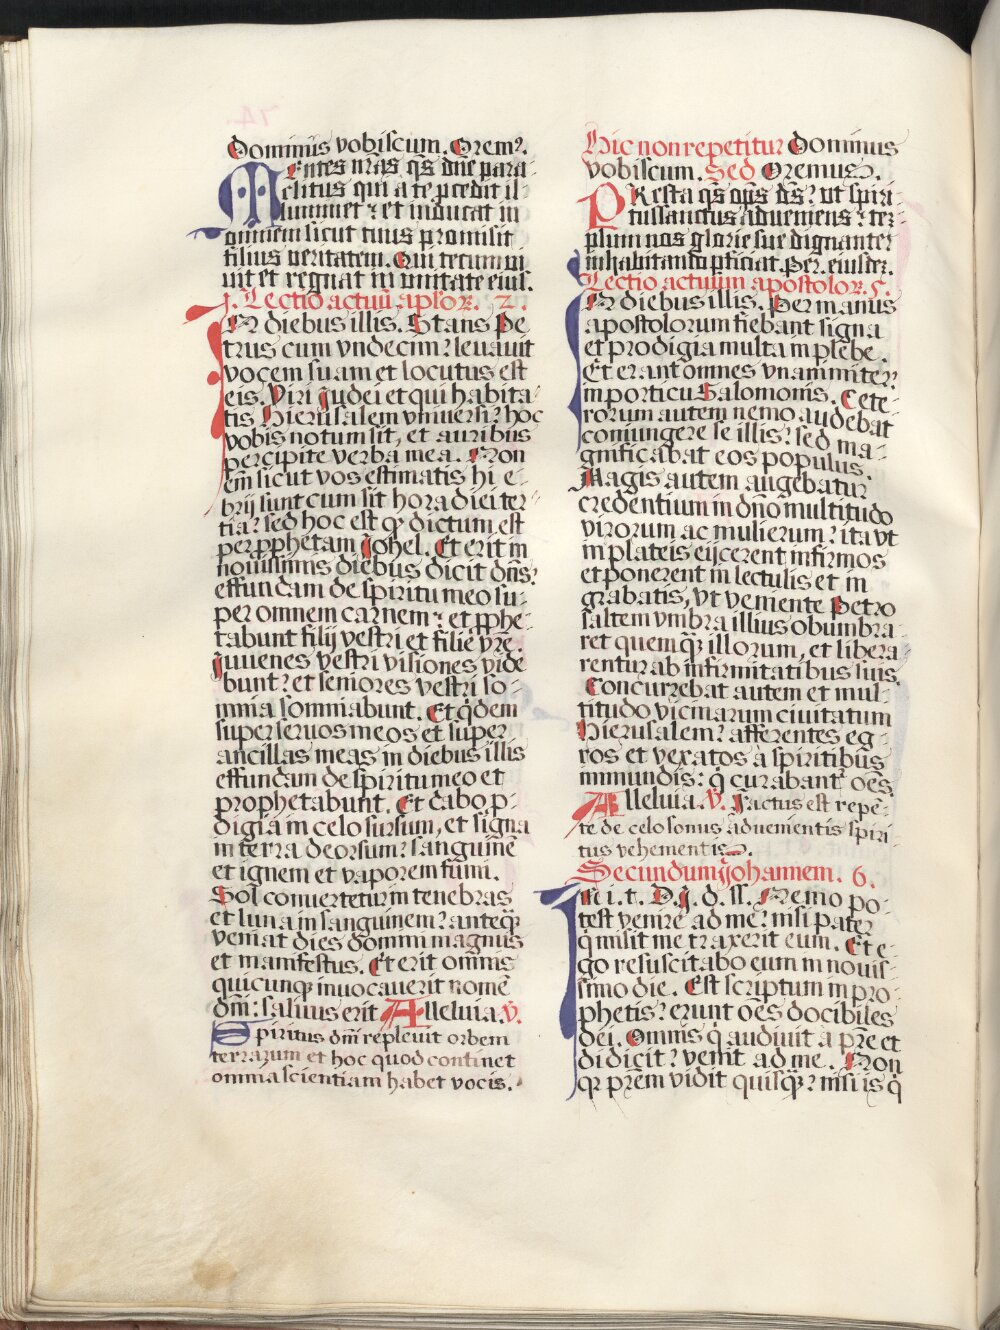 Dominus vobiscum. Orem⁹.
Mentes nr̄as q̄s dn̄e para-
clitus qui a te p̄cedit il-
luminet : et inducat in
omnem sicut tuus promisit
filius veritatem. Qui tecum vi
vit et regnat in unitate eius.
Lectio actuū aplor̄. 2.
IN diebus illis. Stans Pe-
trus cum vndecim : levavit
vocem suam et locutus est
eis. Viri Judei et qui habita-
tis Hierusalem vniversi : hoc
vobis notum sit, et auribus
percipite verba mea. Non
em̄ sicut vos estimatis hi e-
brij sunt cum sit hora diei ter-
tia : sed hoc est qd̄ dictum est
per pphetam Johel. Et erit in
novissimis diebus dicit dn̄s :
effundam de spiritu meo su-
per omnem carnem : et pphe-
tabunt filij vestri et filie vr̄e.
Juvenes vestri visiones vide
bunt : et seniores vestri so-
mnia somniabunt. Et q̇dem
super servos meos et super
ancillas meas in diebus illis
effundam de spiritu meo et
prophetabunt. Et dabo p-
digia in celo sursum, et signa
in terra deorsum : sanguinē
et ignem et vaporem fumi.
Sol convertetur in tenebras
et luna in sanguinem : anteq̄
veniat dies domini magnus
et manifestus. Et erit omnis
quicunq; invocaverit nomē
dn̄i : salvus erit Alleluia. V.
Spiritus dn̄i replevit orbem
terrarum et hoc quod continet
omnia scientiam habet vocis.
Hic non repetitur Dominus
vobiscum. Sed Oremus.
PResta q̄s op̄s ds̄ : ut spiri-
tus sanctus adveniens : tem-
plum nos glorie sue dignanter
inhabitando pficiat. Per. eiusdē.
Lectio actuum apostolor̄. 5.
IN diebus illis. Per manus
apostolorum fiebant signa
et prodigia multa in plebe.
Et erant omnes vnanimiter :
in porticu Salomonis. Cete-
rorum autem nemo audebat
coniungere se illis : sed ma-
gnificabat eos populus.
Magis autem augebatur
credentium in dn̄o multitudo
virorum ac mulierum : ita vt
in plateis eijcerent infirmos
et ponerent in lectulis et in
grabatis, vt veniente Petro
saltem vmbra illius obumbra-
ret quemq̄ illorum, et libera
rentur ab infirmitatibus suis.
Concurrebat autem et mul-
titudo vicinarum civitatum
Hierusalem : afferentes eg-
ros et vexatos à spiritibus
immundis : q̇ curabant⁹ oēs.
Alleluia. V. Factus est repē-
te de celo sonus advenientis spiri
tus vehementis.
Secundum Johannem. 6.
IN i. t. D. J. d. ss. Nemo po-
test venire ad me : nisi pater
q̇ misit me traxerit eum. Et e-
go resuscitabo eum in novis-
simo die. Est scriptum in pro-
phetis : erunt oēs docibiles
dei. Omnis q̇ audivit à pr̄e et
didicit : venit ad me. Non
qr̄ prēm vidit quisq̄ : nisi is q̇